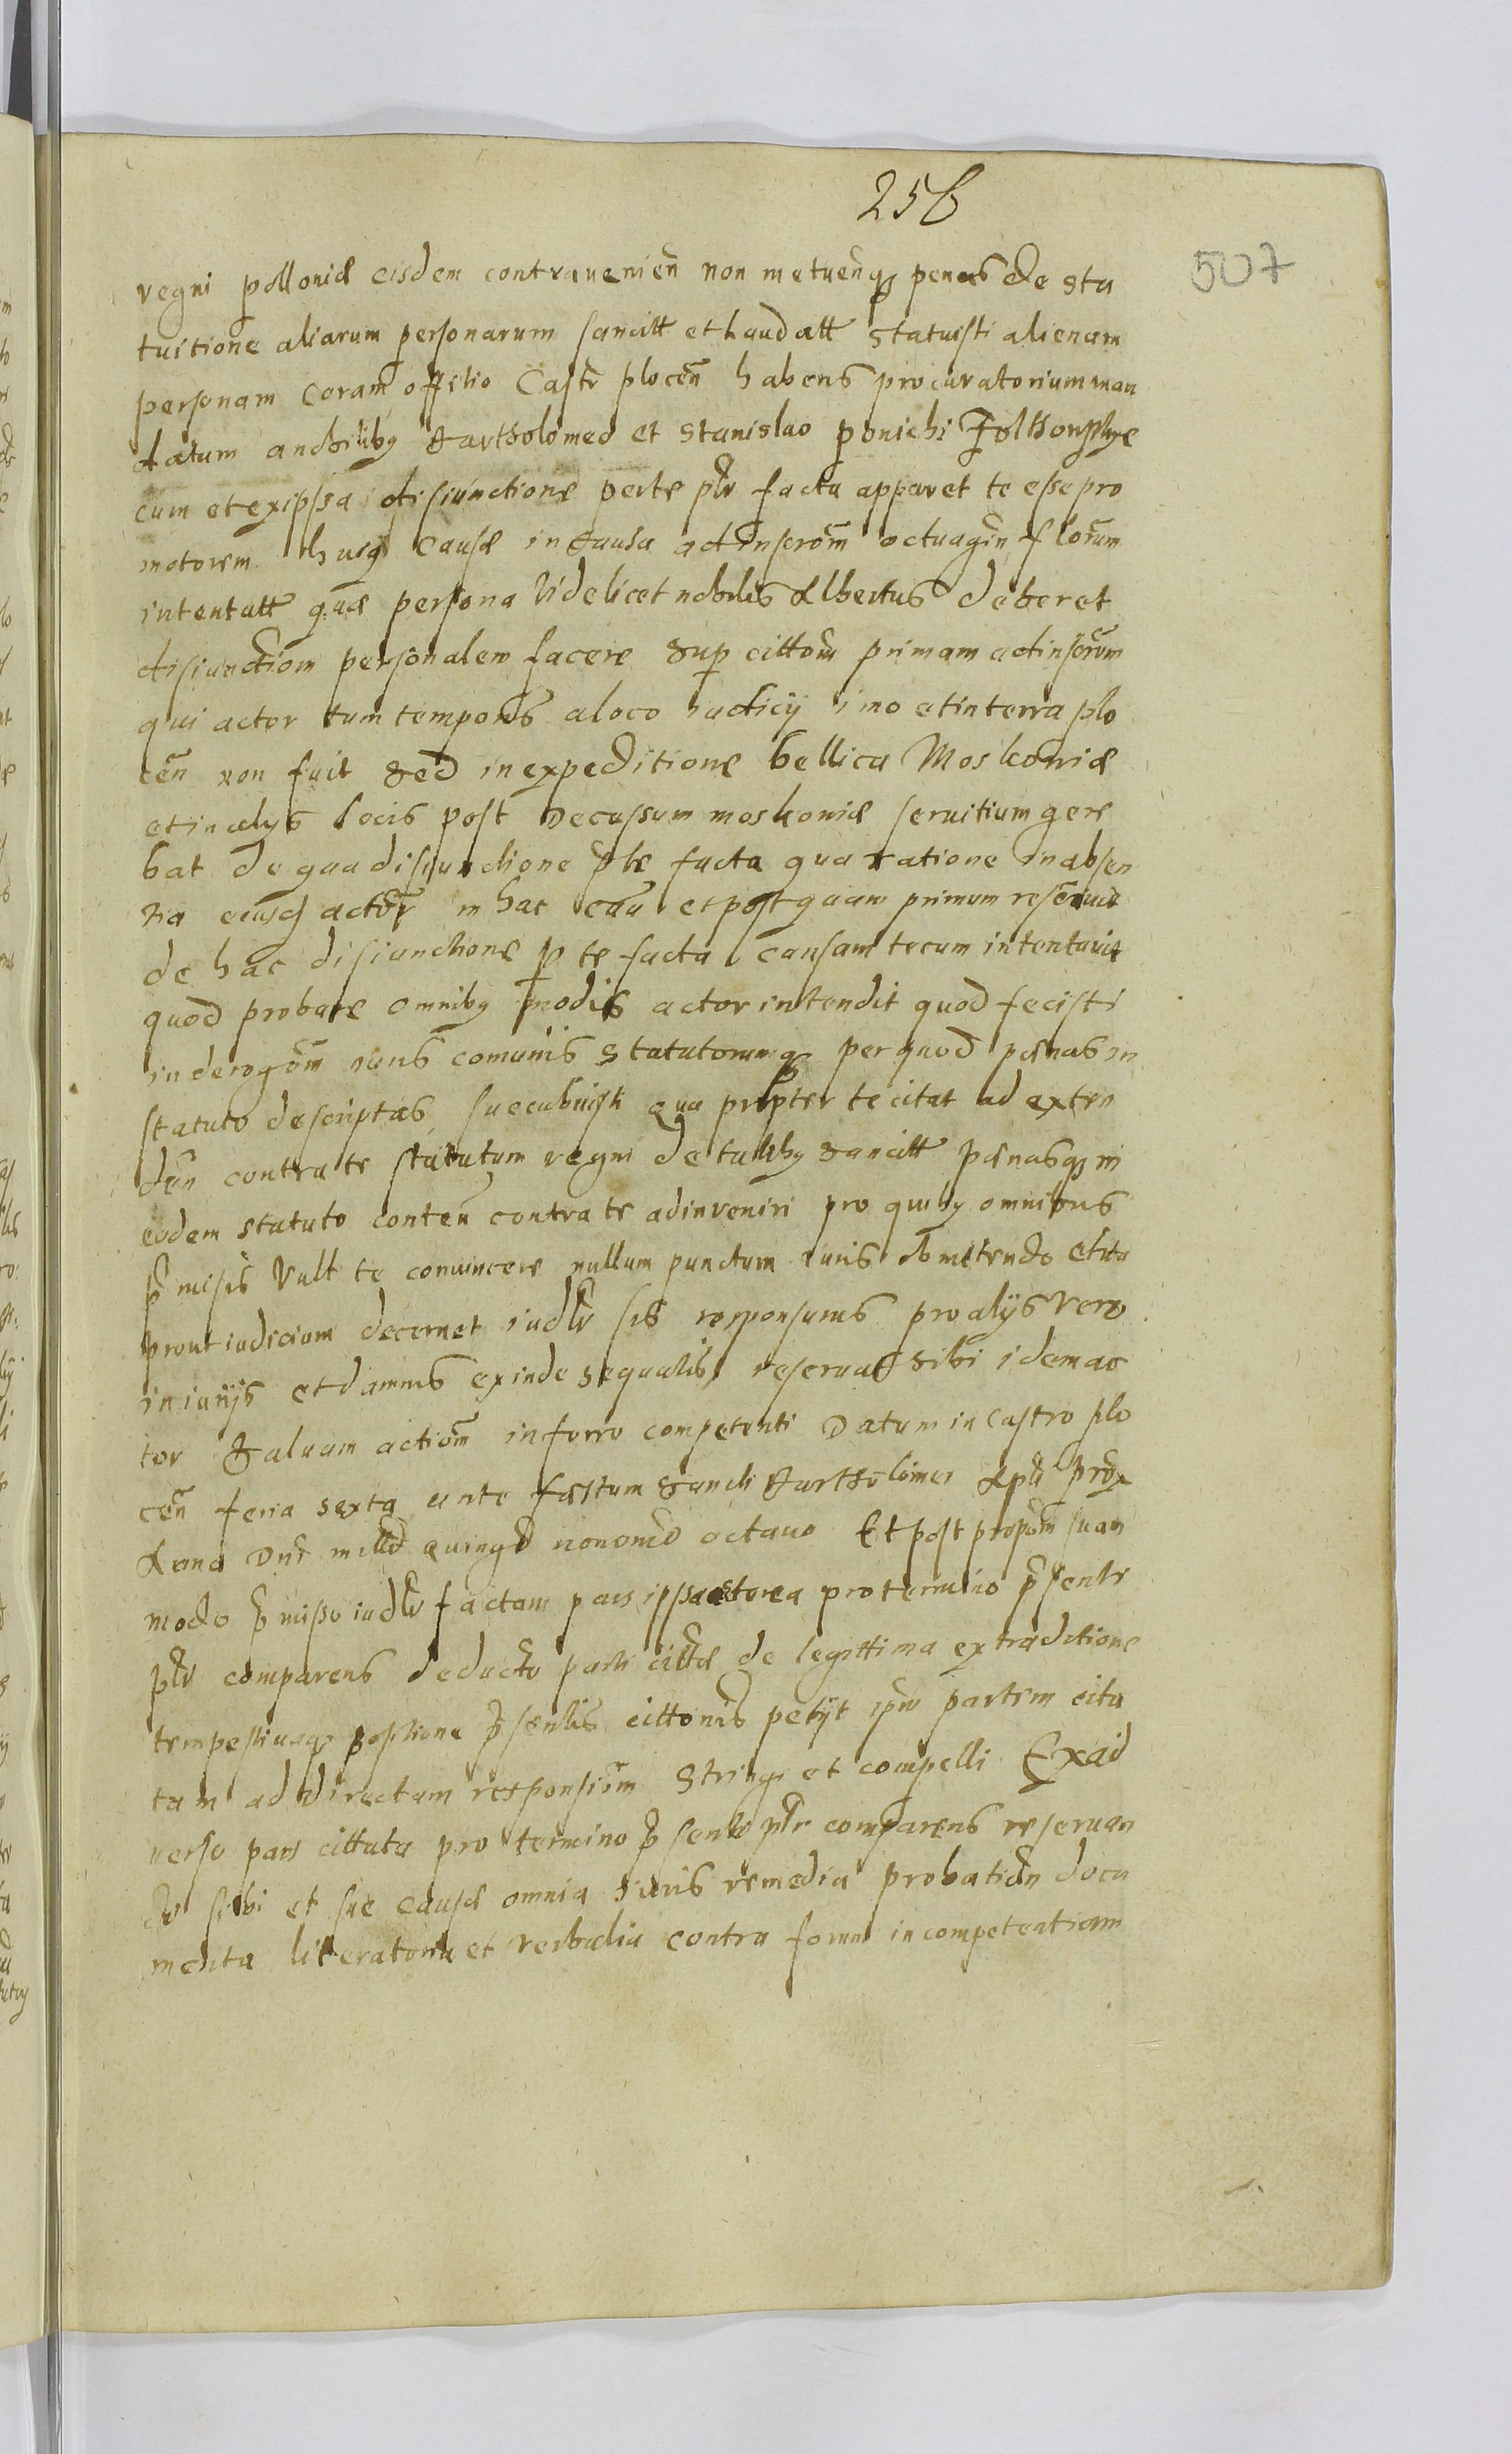 256
507
regni polloniæ eisdem contrauenien non metuenq penas de sta
tuitione aliarum personarum sancitt et laudatt statuisti alienam
personam coram offitio Castr plocen habens procuratorium man
datum a nobilibq Bartholomeo et Stanislao ponichi
cum et ex ipssa disiunctione per te ptr facta apparet te esse pro
motorem huiq causæ in causa ad inscrom octuagin florum
intentatt quæ persona videlicet nobilis Albertus deberet
disiunctiom personalem facere sup cittom primam ad inscrom
qui actor tum temporis a loco iudicij imo et in terra plo
cen non fuit sed in expeditione bellica Moskouiæ
et in alys locis post Decassum moskouiæ seruitium gere
bat de qua disiunctione p te facta qua ratione in absen
tia eiusd actor in hac cau et postquam primum resciuit
de hac disiunctione p te facta causam tecum intentauit
quod probare omnibq modis actor intendit quod fecisti
in derogom iuris comunis statutorumq per quod pænas in
statuto descriptas succubuisti qua propter te citat ad exten
den contra te statutum regni de talibq sancitt pænasq in
eodem statuto conten contra te adinveniri pro quibq omnibus
pmisis vult te conuincere nullum punctum iuris obmitendo et ita
prout iudicium decernet iudlr sis responsurus pro alijs vero
iniurijs et damnis exinde sequutis reseruat sibi idem ac
tor saluam actiom in forro competenti Datum in Castro plo
cen feria sexta ante fæstum sancti Bartholomei Apli prox
Anno Dni milld quingd nonomo octauo Et post propom suam
modo pmisso iudlr factam pars ipssa actorea pro termino psente
ptr comparens deducto parti cittæ de legittima extraditione
tempestiuaq positione psentis cittonis petijt ipm partem cita
tam ad directam responsiom stringi et compelli Ex ad
uerso pars cittata pro termino psente ptr comparens reseruan
do sibi et suæ causæ omnia iuris remedia probation docu
menta literatoria et verbalia contra forum incompetentiam